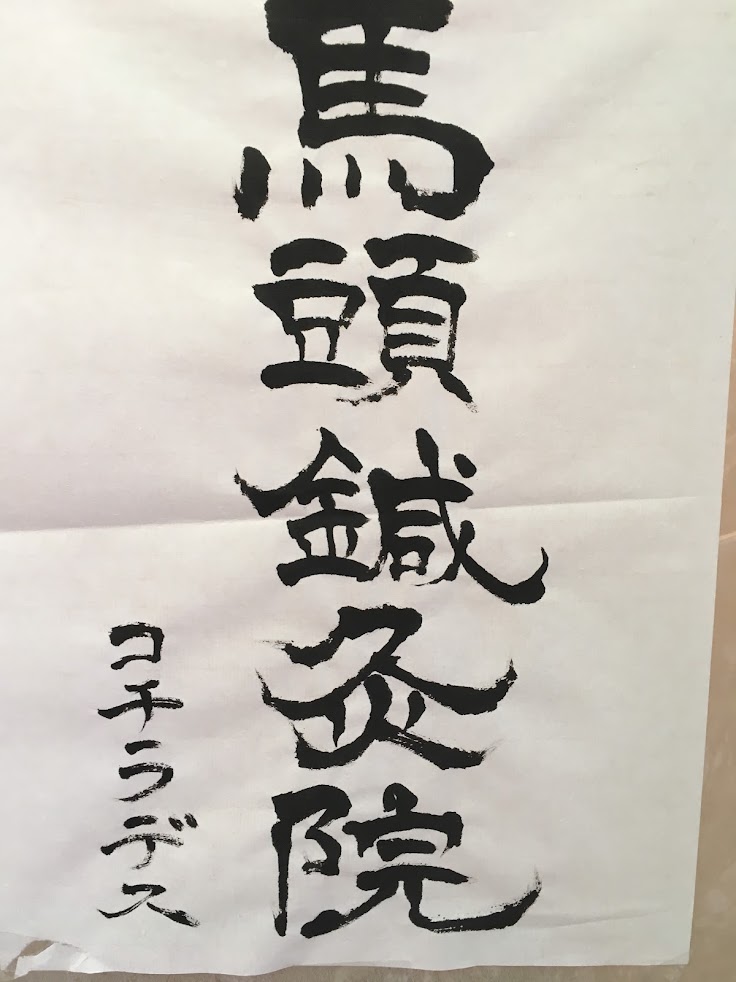 馬頭鍼灸院
コチラデス